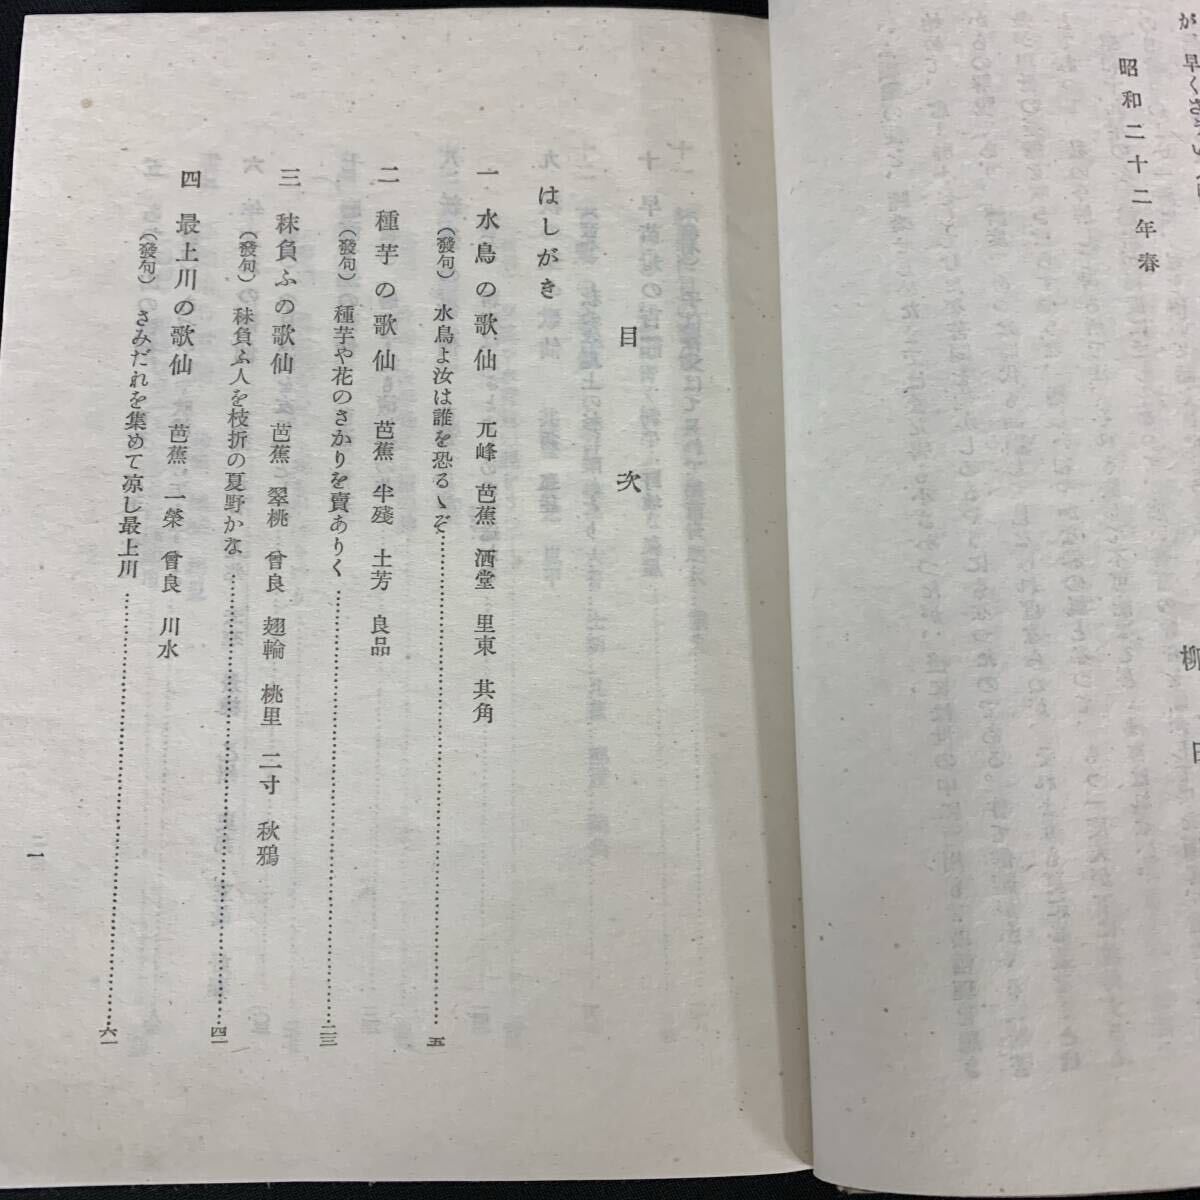 昭和二十二年春
柳
目次
はしがき
一 水鳥の歌仙 元峰 芭蕉 洒堂 里東 其角
（發句）水鳥よ汝は誰を恐るゝぞ……五
二 種芋の歌仙 芭蕉 半殘 土芳 良品
（發句）種芋や花のさかりを賣ありく……二三
三 秣負ふの歌仙 芭蕉 翠桃 曾良 翅輪 桃里 二寸 秋鴉
（發句）秣負ふ人を枝折の夏野かな……四一
四 最上川の歌仙 芭蕉 一榮 曾良 川水
（發句）さみだれを集めて凉し最上川……六一